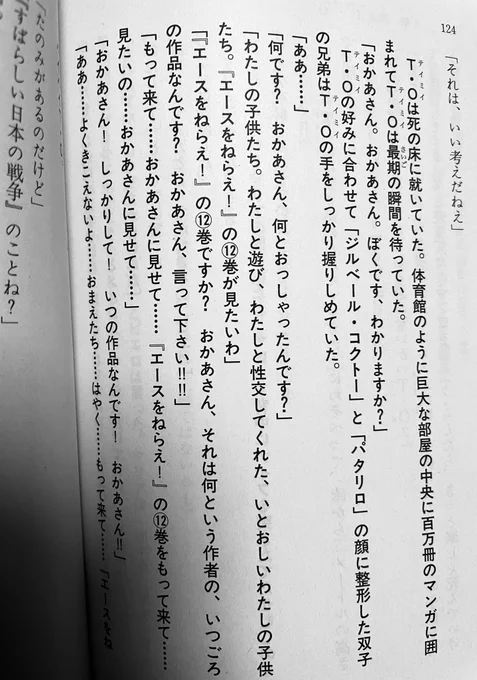 124
「それは、いい考えだねえ」
T・Oは死の床に就いていた。体育館のように巨大な部屋の中央に百万冊のマンガに囲
まれてT・Oは最期の瞬間を待っていた。
「おかあさん。おかあさん。ぼくです、わかりますか？」
T・Oの好みに合わせて「ジルベール・コクトー」と「パタリロ」の顔に整形した双子
の兄弟はT・Oの手をしっかり握りしめていた。
「ああ……」
「何です？　おかあさん、何とおっしゃったんです？」
「わたしの子供たち。わたしと遊び、わたしと性交してくれた、いとおしいわたしの子供
たち。『エースをねらえ！』の⑫巻が見たいわ」
「『エースをねらえ！』の⑫巻ですか？　おかあさん、それは何という作者の、いつごろ
の作品なんです？　おかあさん、言って下さい!!!」
「もって来て……おかあさんに見せて……『エースをねらえ！』の⑫巻をもって来て……
見たいの……おかあさんに見せて……」
「おかあさん！　しっかりして！　いつの作品なんです！　おかあさん!!」
「ああ……よくきこえないよ……おまえたち……はやく……もって来て……『エースをね
「たのみがあるのだけど」
「『すばらしい日本の戦争』のことね？」